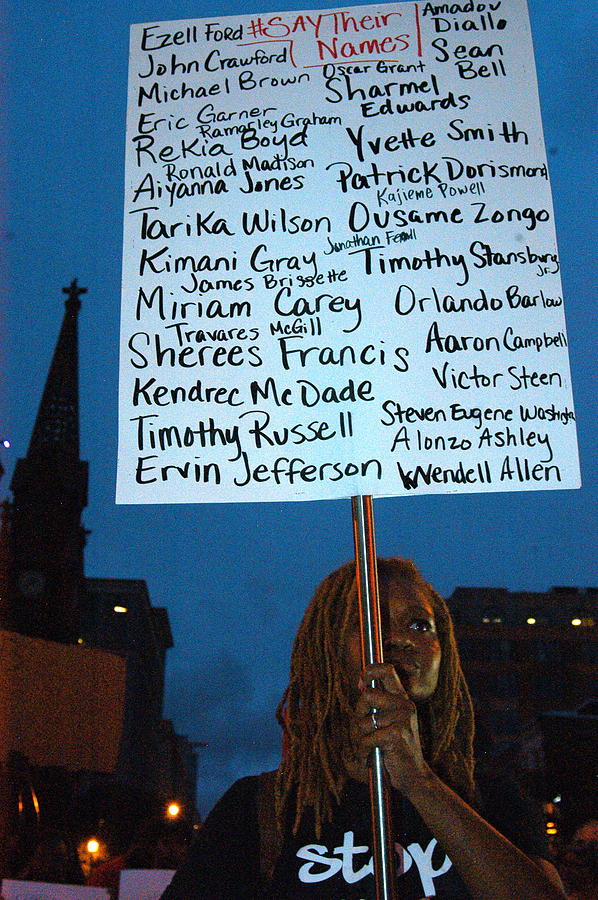 Ezell Ford #SAYTheir Names Amadou Diallo
John Crawford
Michael Brown Oscar Grant Sean Bell
Sharmel Edwards
Eric Garner
Ramarley Graham
Rekia Boyd Yvette Smith
Ronald Madison
Aiyanna Jones Patrick Dorismond
Kajieme Powell
Tarika Wilson Ousame Zongo
Jonathan
Kimani Gray Timothy Stansbury Jr.
James Brissette
Miriam Carey Orlando Barlow
Travares McGill
Sherees Francis Aaron Campbell
Kendrec McDade Victor Steen
Timothy Russell Steven Eugene Washington
Alonzo Ashley
Ervin Jefferson Wendell Allen
stop